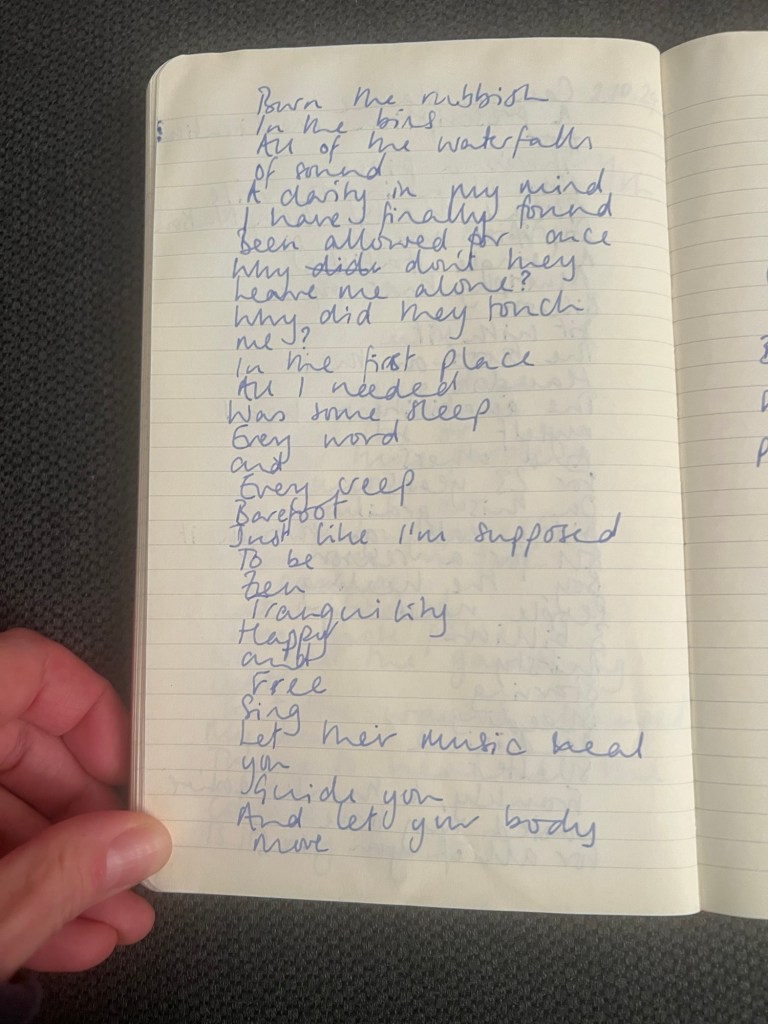 Burn the rubbish
In the bins
All of the waterfalls
of sound
A clarity in my mind
I have finally found
Been allowed for once
Why did don't they
Leave me alone?
Why did they touch
me?
In the first place
All I needed
Was some sleep
Every word
and
Every creep
Barefoot
Just like I'm supposed
To be
Zen
Tranquility
Happy
and
Free
Sing
Let their music heal
you
Guide you
And let your body
move